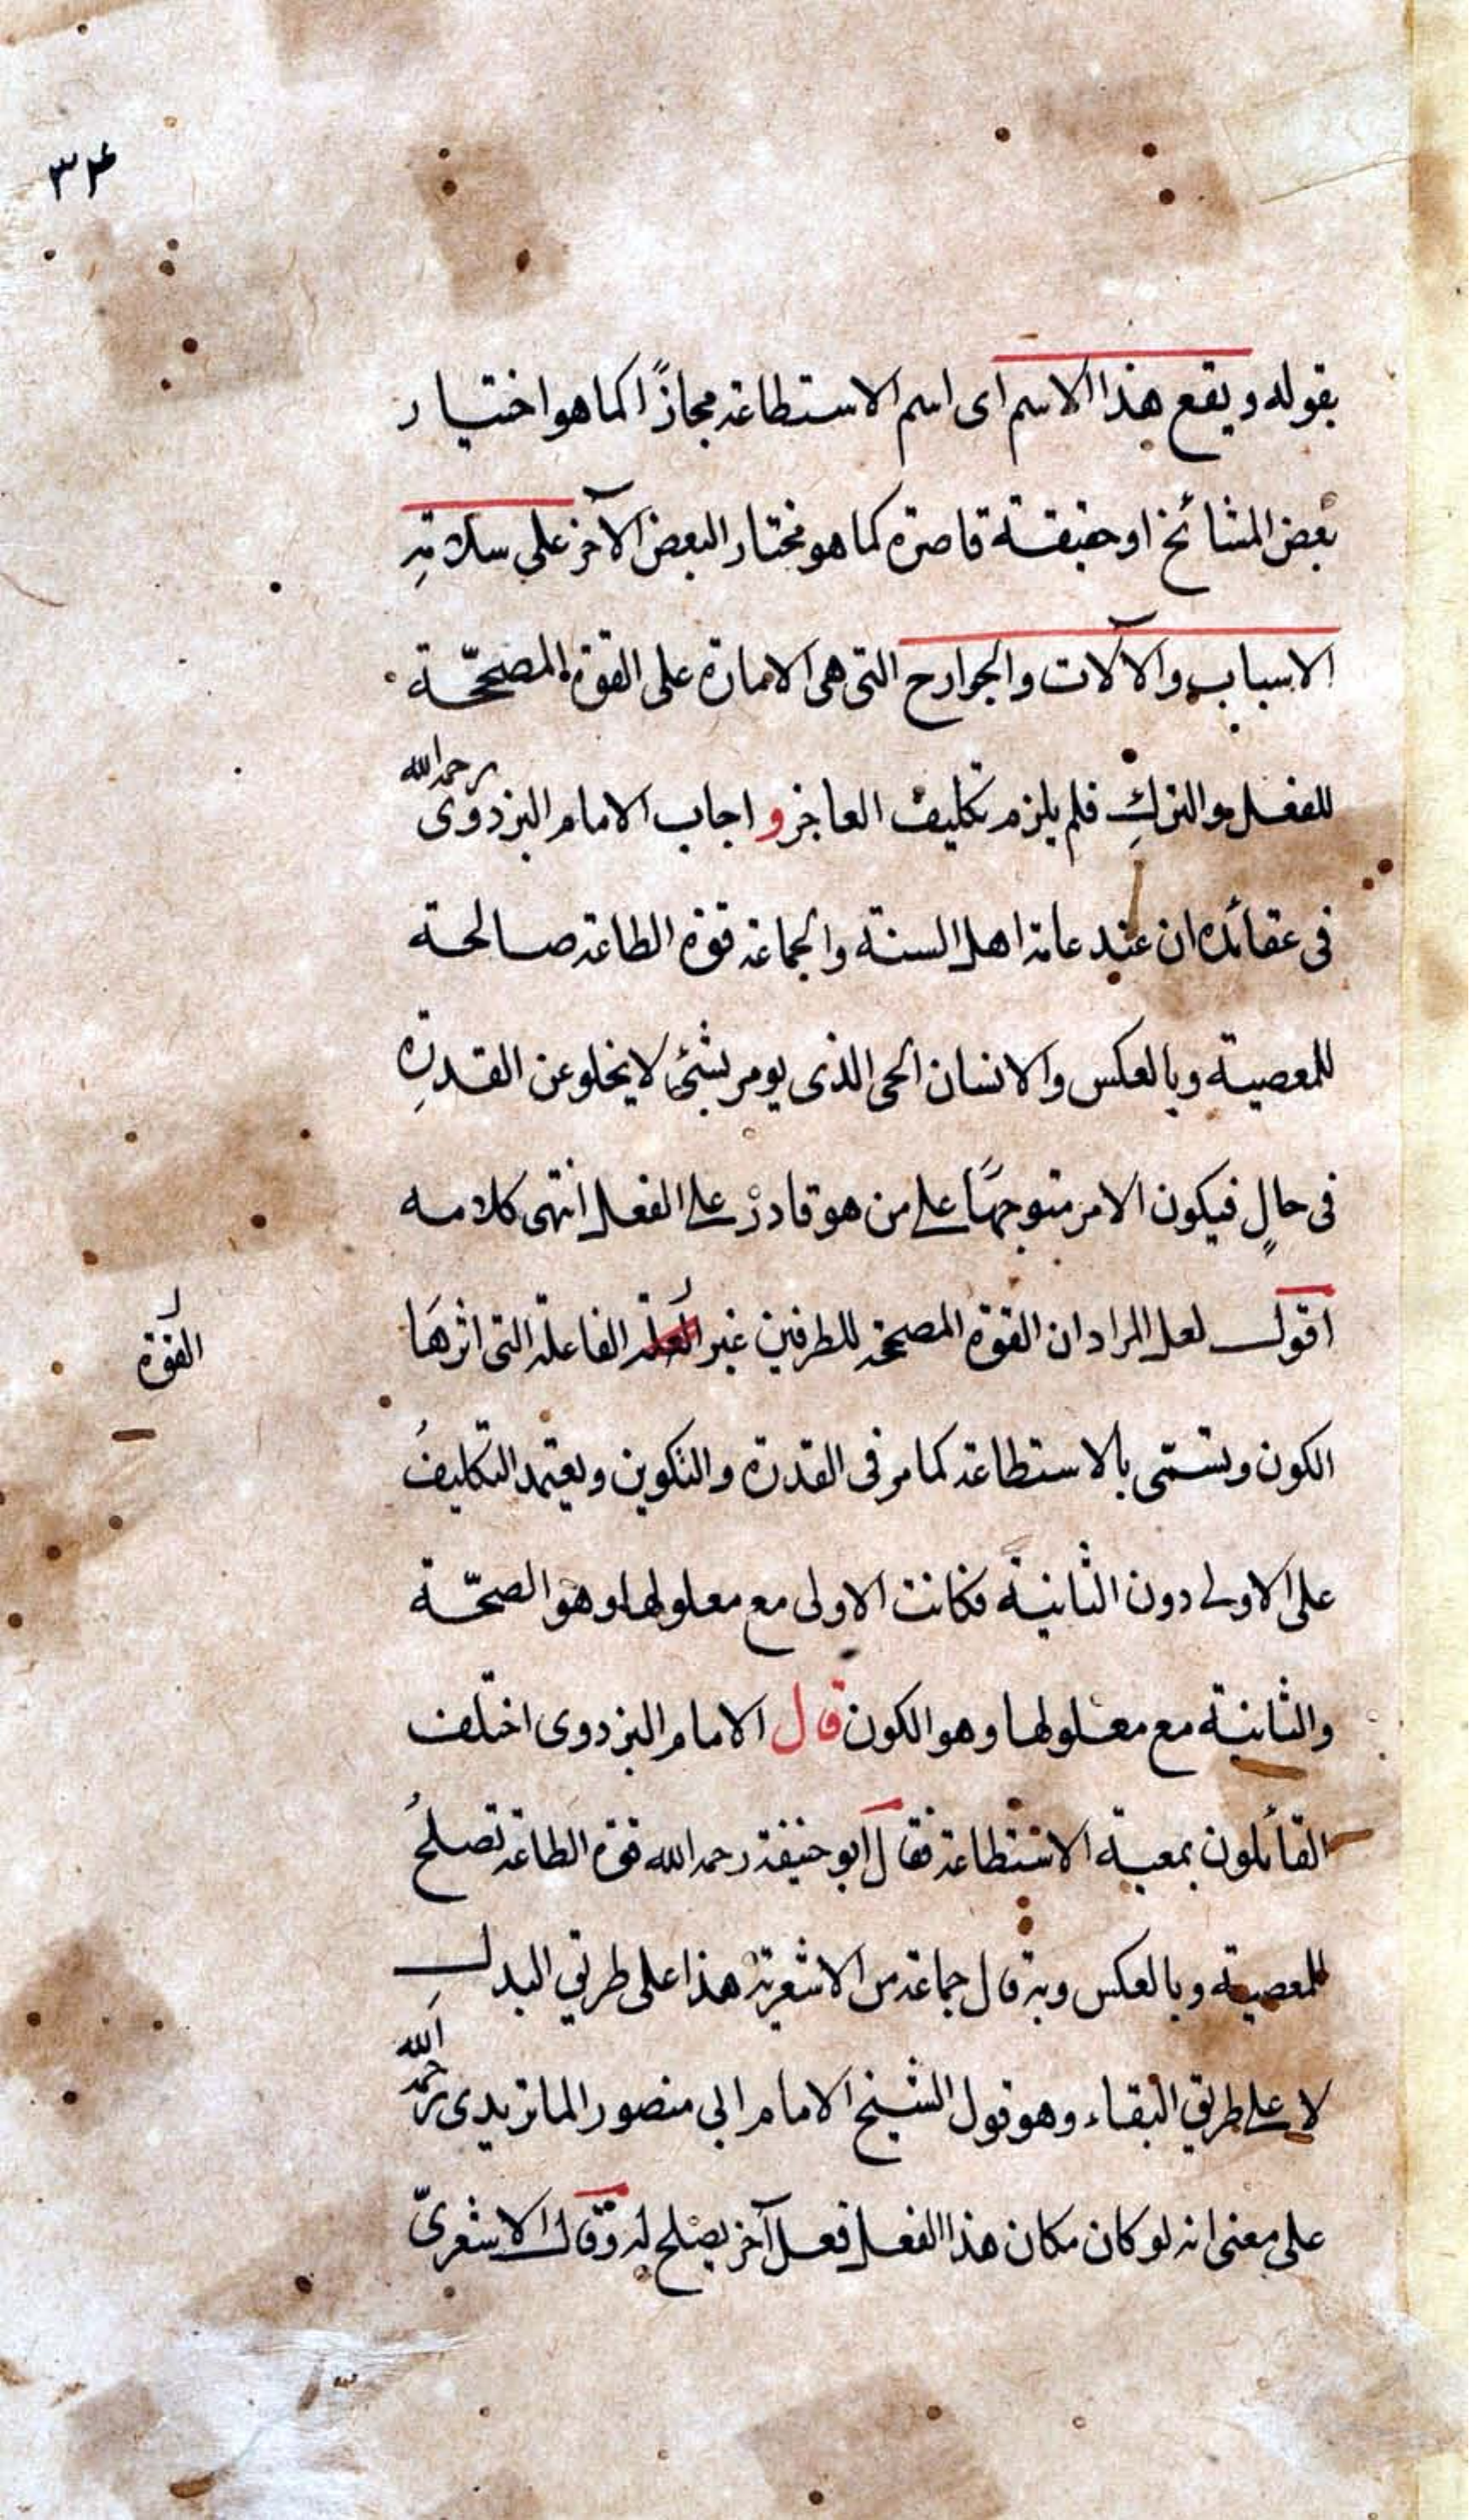 ٣٤
بقوله ويقع هذا الاسم اى اسم الاستطاعة مجازًا كما هو اختيار
بعض المشائخ او حقيقة قاصرة كما هو مختار البعض الآخر على سلامة
الاسباب والآلات والجوارح التى هى الامارة على القوة المصححّة
للفعل والترك فلم يلزم تكليف العاجز و اجاب الامام البزدوى رحمه الله
فى عقائده ان عند عامة اهل السنة والجماعة قوة الطاعة صالحة
للمعصية وبالعكس والانسان الحى الذى يومر بشئ لا يخلو عن القدرة
فى حالٍ فيكون الامر متوجهًا على من هو قادر على الفعل انتهى كلامه
اقول لعل المراد ان القوة المصححة للطرفين غير العلة الفاعلة التى اثرها
القوة
الكون وتسمّى بالاستطاعة كما مر فى القدرة والتكوين ويعتمد التكليفُ
على الاولى دون الثانية فكانت الاولى مع معلولها وهو الصحّة
والثانية مع معلولها وهو الكون قال الامام البزدوى اختلف
القائلون بمعية الاستطاعة فقال ابو حنيفة رحمه الله قوة الطاعة تصلحُ
للمعصية وبالعكس وبه قال جماعة من الاشعرية هذا على طريق البدل
لا على طريق البقاء وهو قول الشيخ الامام ابى منصور الماتريدى رحمه الله
على معنى انه لو كان مكان هذا الفعل فعل آخر يصلح له وقال الاشعرىّ